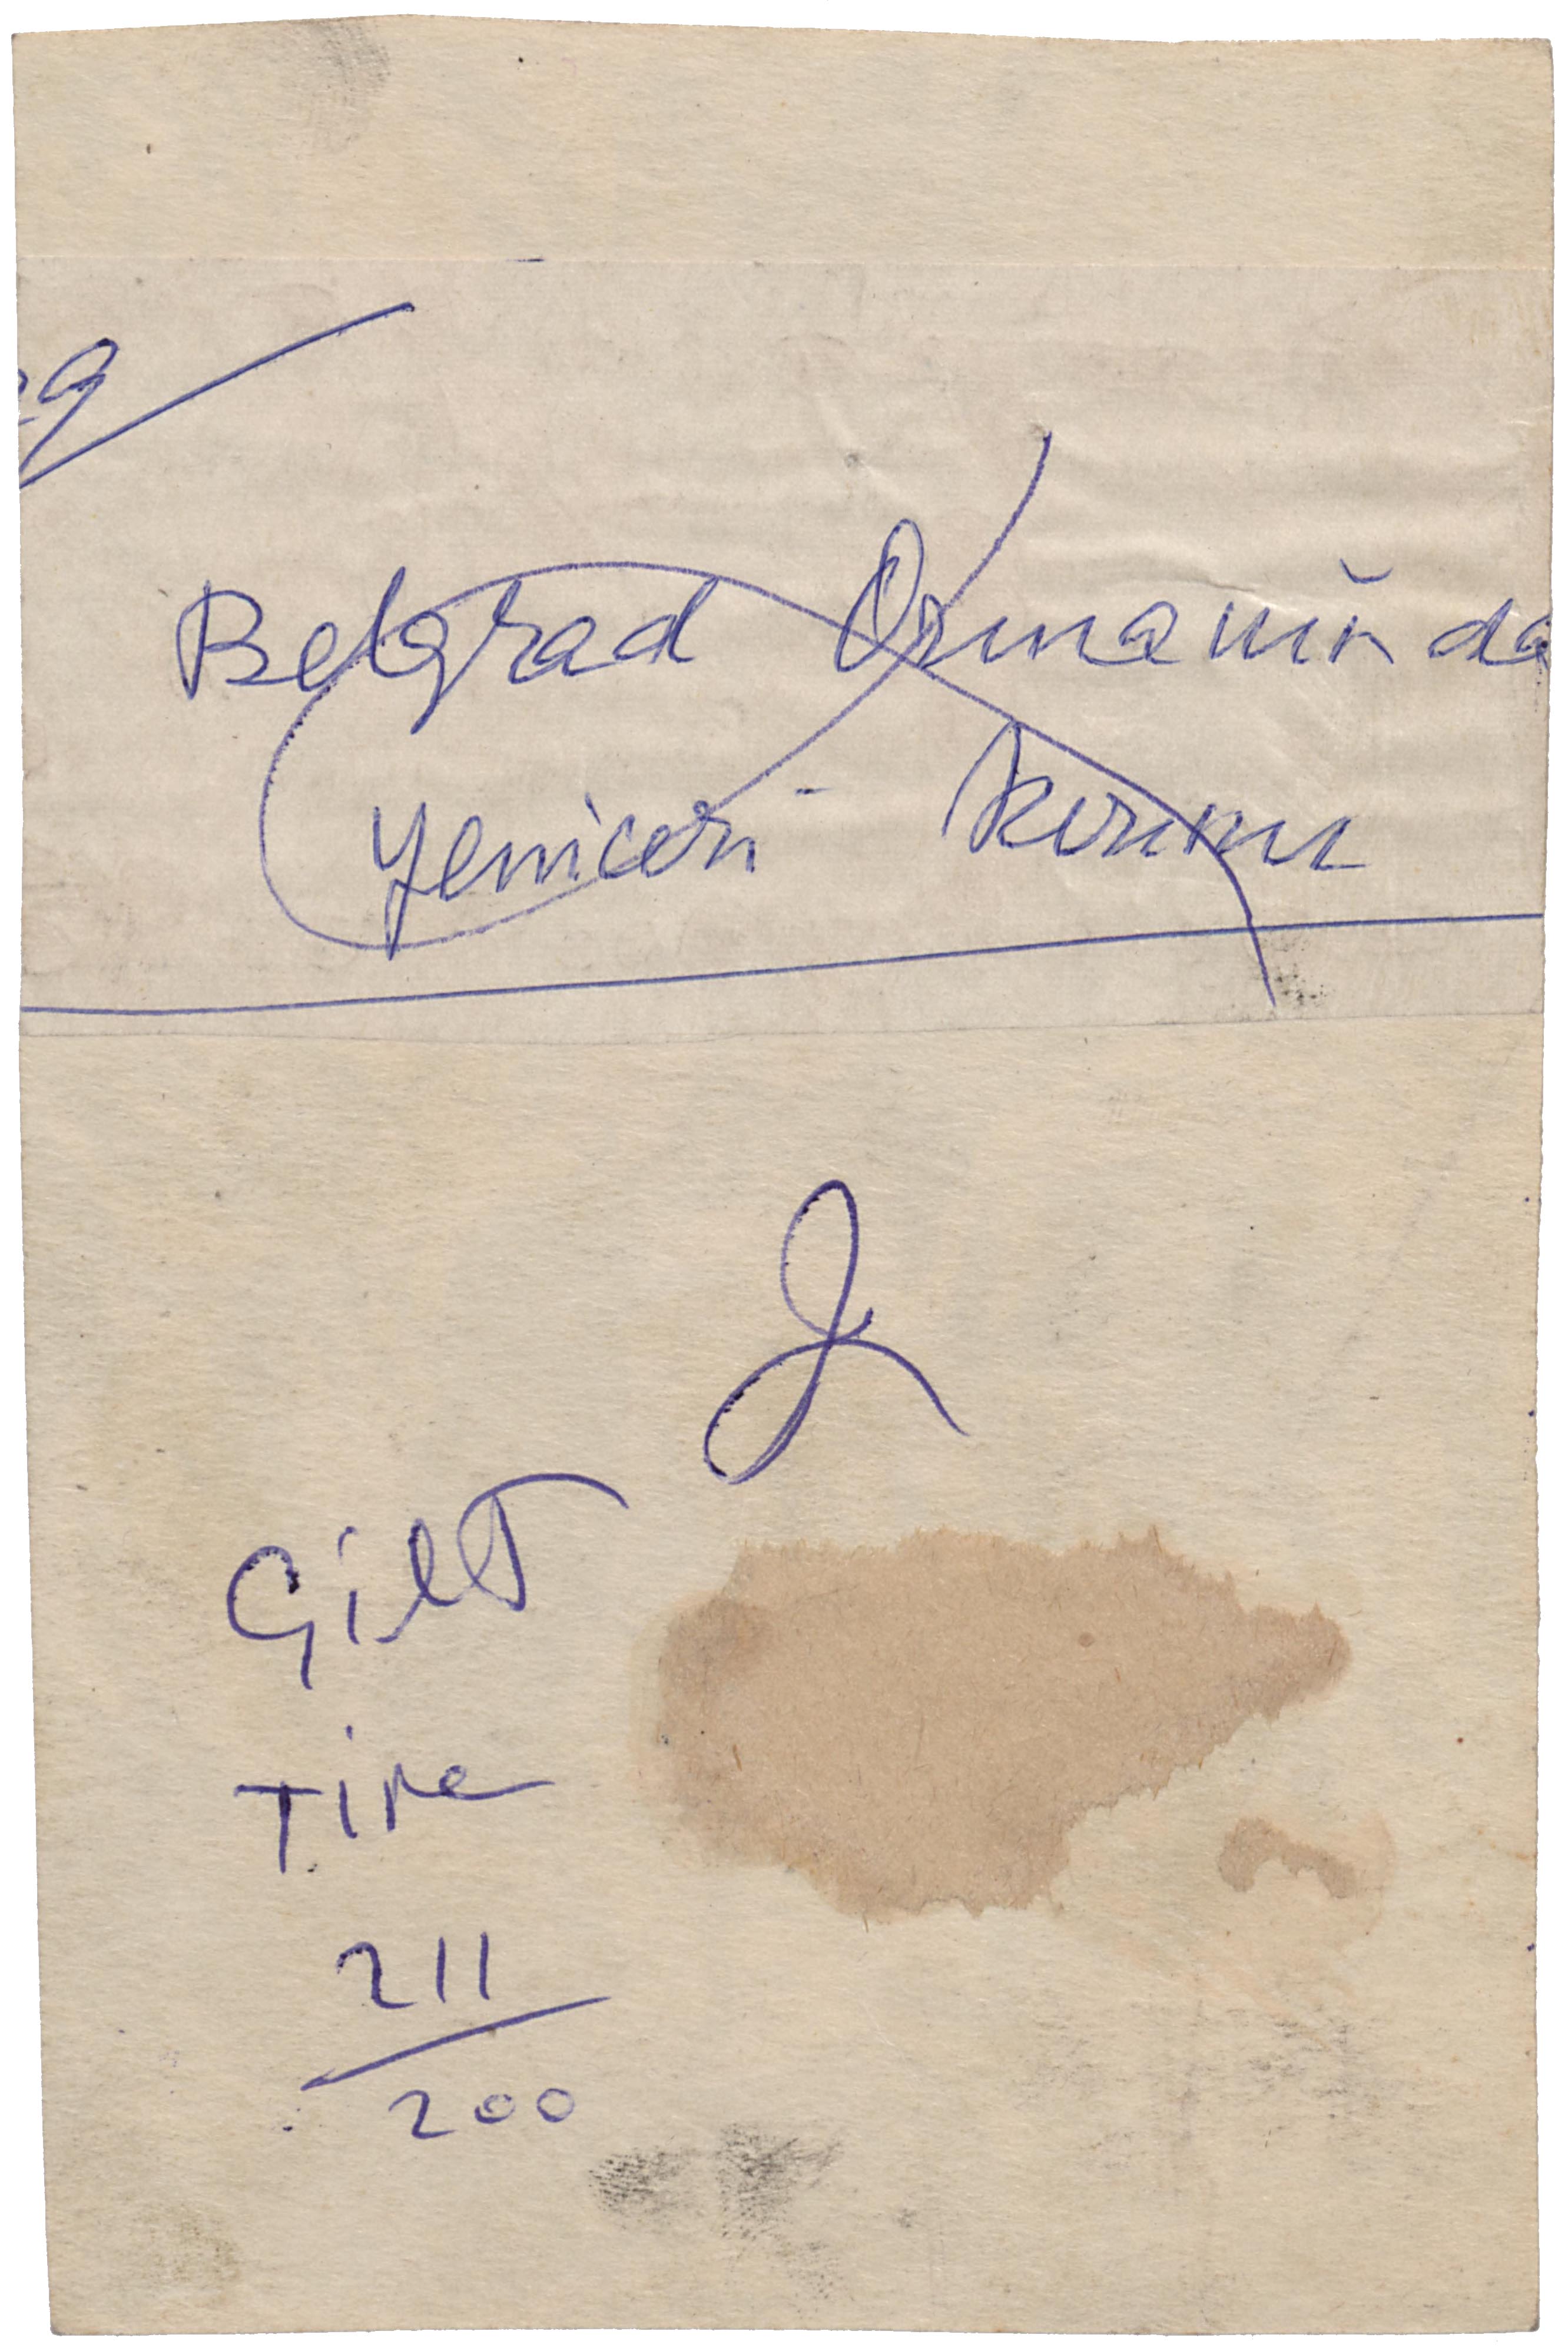 Belgrad Ormanında
Yeniceri Kırımı
Gilt
Tire
211
200